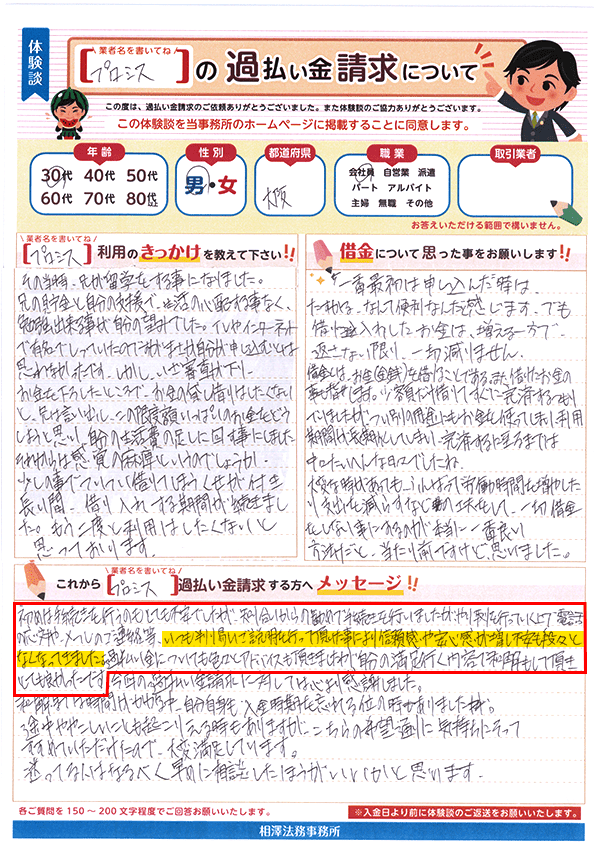 体験談
業者名を書いてね
[プロミス]の過払い金請求について
この度は、過払い金請求のご依頼ありがとうございました。また体験談のご協力ありがとうございます。
この体験談を当事務所のホームページに掲載することに同意します。
年齢
30代 40代 50代
60代 70代 80代以上
性別
男・女
都道府県
大阪
職業
会社員 自営業 派遣
パート アルバイト
主婦 無職 その他
取引業者
お答えいただける範囲で構いません。
業者名を書いてね
[プロミス]利用のきっかけを教えて下さい!!
その当時、兄が留学をする事になりました。
兄の貯金と自分の支援で、生活の心配する事なく、
勉強出来る事が自分の望みでした。TVやインターネット
で有名でしっていたので
思わなかったです。しかし、いざ審査が下り
お金を下ろしたところで、お金の貸し借りはしたくない
と兄は言い出し、この限度額いっぱいのお金をどう
しようと思い自分の生活費の足しに回す事にしました
それからは感覚の麻痺というのでしょうか
少しの事でついつい借りてしまうくせが付き
長い間、借り入れする期間が続きまし
た。もう二度と利用はしたくないと
思っております。
借金について思った事をお願いします!!
一番最初は申し込んだ時は
なんて便利なんだと感じます。でも
借り入れしたお金は、増える一方で、
返さない限り、一切減りません。
借金とは、お金(金銭)を借りることである。また借りたお金の
事も指します。少額だけ借りてすぐに完済すると
いましたが、つい別の用途にもお金を使ってしまい利用
期間が長期化してしまい完済するに至るまでは
大へんな日々でしたね。
労働時間を増やした
り支出を減らすなど工夫をして、一切借金
をしない事にするのが本当に一番良い
方法だと、当たり前ですけど思いました。
業者名を書いてね
これから[プロミス]過払い金請求する方へメッセージ!!
初めは手続きを行うのもとても不安でしたが、知り合いからの勧めで手続きを行いましたがやり取りを行っていく上で電話
の応対や、メールのご連絡等、いつも判り易いご説明を行って頂いた事により信頼感や安心感が増し不安も段々と
なくなってきました。過払い金についても色々とアドバイスも頂きましたので自分の満足行く内容で和解もして頂き
とても良かったです。今回の過払い金請求に対しては心より感謝しました。
和解までは時間がかかる中、自分自身も入金時期を忘れる位の時がありましたが、
途中ややこしいことも起こりえる時もありますが、こちらの希望通りに気持ちにそって
すすめていただけたので、大変満足しています。
迷ってる人はなるべく早めに相談したほうがいいかと思います。
各ご質問を150～200文字程度でご回答お願いいたします。
※入金日より前に体験談のご返送をお願いいたします。
相澤法務事務所